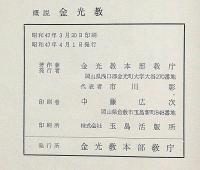 概説 金光教
昭和47年3月20日印刷
昭和47年4月1日発行
著作兼発行者 金光教本部教庁
岡山県浅口郡金光町大字大谷270番地
代表者 市川彰
印刷者 中藤広次
岡山県倉敷市玉島848番地
印刷所 株式会社 玉島活版所
発行所 金光教本部教庁